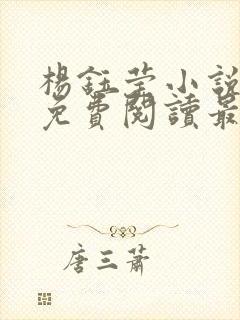 楊鈺莹小說
免費閱讀最
唐三蕭